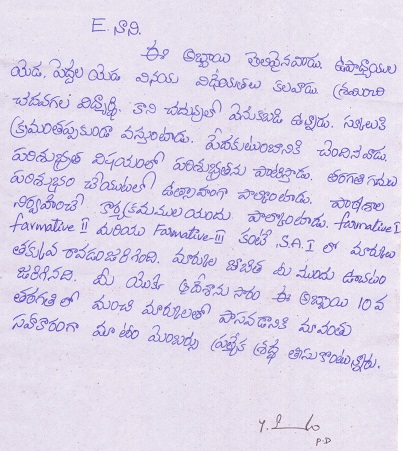 E. నాని.
ఈ అబ్బాయి తెలివైనవాడు. ఉపాధ్యాయుల
యెడ, పెద్దల యెడ వినయ విధేయతలు కలవాడు. శ్రద్ధగా
చదవగల విద్యార్థి. కాని చదువులో వెనుకబడి ఉన్నాడు. స్కూలుకి
క్రమంతప్పకుండా వస్తుంటాడు. పేదకుటుంబానికి చెందినవాడు.
పరిశుభ్రత విషయంలో పరిశుభ్రతను పాటిస్తాడు. తరగతి గదులు
పరిశుభ్రం చేయుటలో ఉత్సాహంగా పాల్గొంటాడు. పాఠశాల
నిర్వహించే కార్యక్రమములయందు పాల్గొంటాడు. formative I
formative II మరియు Formative-III కంటే S.A.I లో మార్కులు
తక్కువ రావడంజరిగింది. మార్కుల జాబిత మీ ముందు ఉంచటం
జరిగినది. మీ యొక్క ఆదేశానుసారం ఈ అబ్బాయి 10వ
తరగతిలో మంచి మార్కులతో పాసవడానికి మావంతు
సహకారంగా మా టీం మెంబర్లు ప్రత్యేక శ్రద్ధ తీసుకొంటున్నారు.
P.D